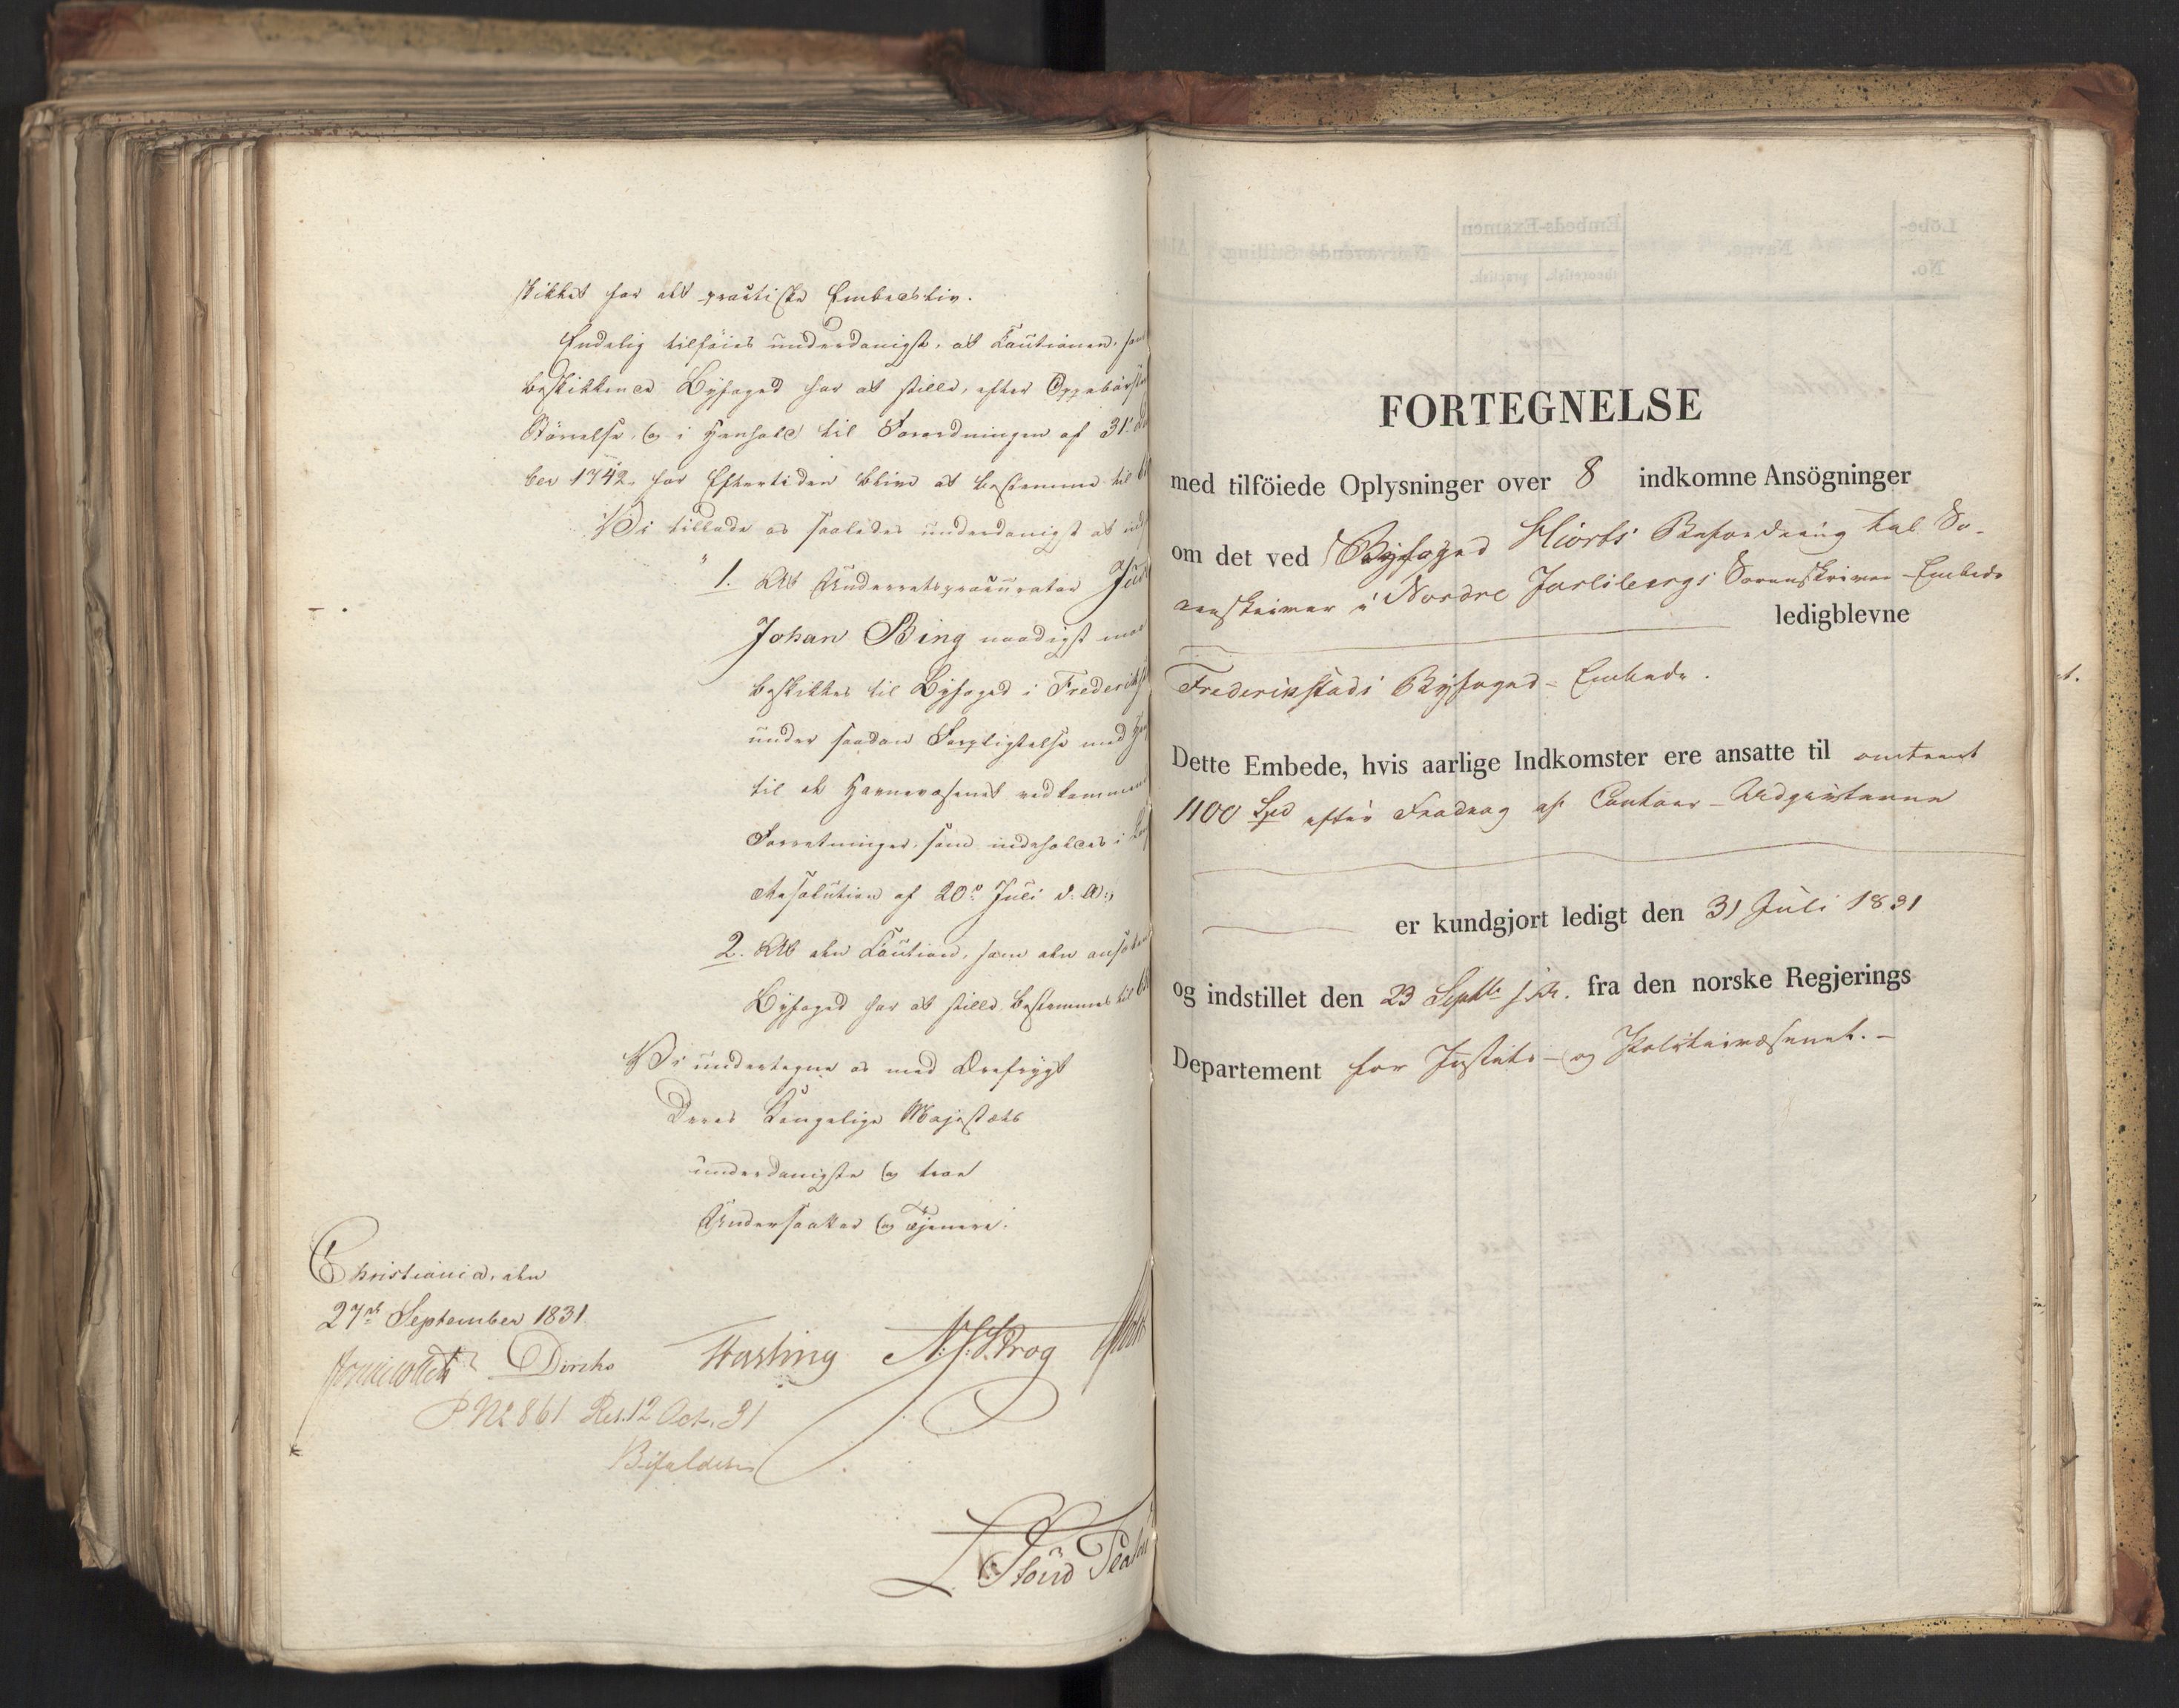 skikket for det practiske Embedsliv.
Endelig tilføies underdanigst, at Cautionen, som
beskikkende Byfoged har at stille, efter Oppebørsle
Størrelse, og i Henhold til Forordningen af 31te
ber 1742, for Eftertiden blive at bestemme til
Vi tillade os saaledes underdanigst at ind
"1. At Underretsprocurator
Johan Bing naadigst maa
beskikkes til Byfoged i Frederiks
under saadan Forpligtelse med
til de Havnevæsenet vedkommende
Forretninger, som indeholdes i
Resolution af 20de Juli d. A.;
2. At den Caution, som den ansatte
Byfoged har at stille, bestemmes til
Vi undertegne os med Ærefrygt
Deres Kongelige Majestæts
underdanigste og troe
Undersaatter og Tjenere.
Christiania, den
27de September 1831.
Diriks
N. J. S. Krog
P. No 861 Res. 12 Oct. 31
Bifaldes
FORTEGNELSE
med tilföiede Oplysninger over 8 indkomne Ansögninger
om det ved Byfoged Hiorts Befordring til So-
renskriver i Nordre Jarlsbergs Sorenskriver-Embede
ledigblevne
Frederikstads Byfoged-Embede.
Dette Embede, hvis aarlige Indkomster ere ansatte til omtrent
1100 Spd efter Fradrag af Contoir-Udgivterne
er kundgjort ledigt den 31 Juli 1831
og indstillet den 23 Septbr s. A. fra den norske Regjerings
Departement for Justits- og Politievæsenet.-